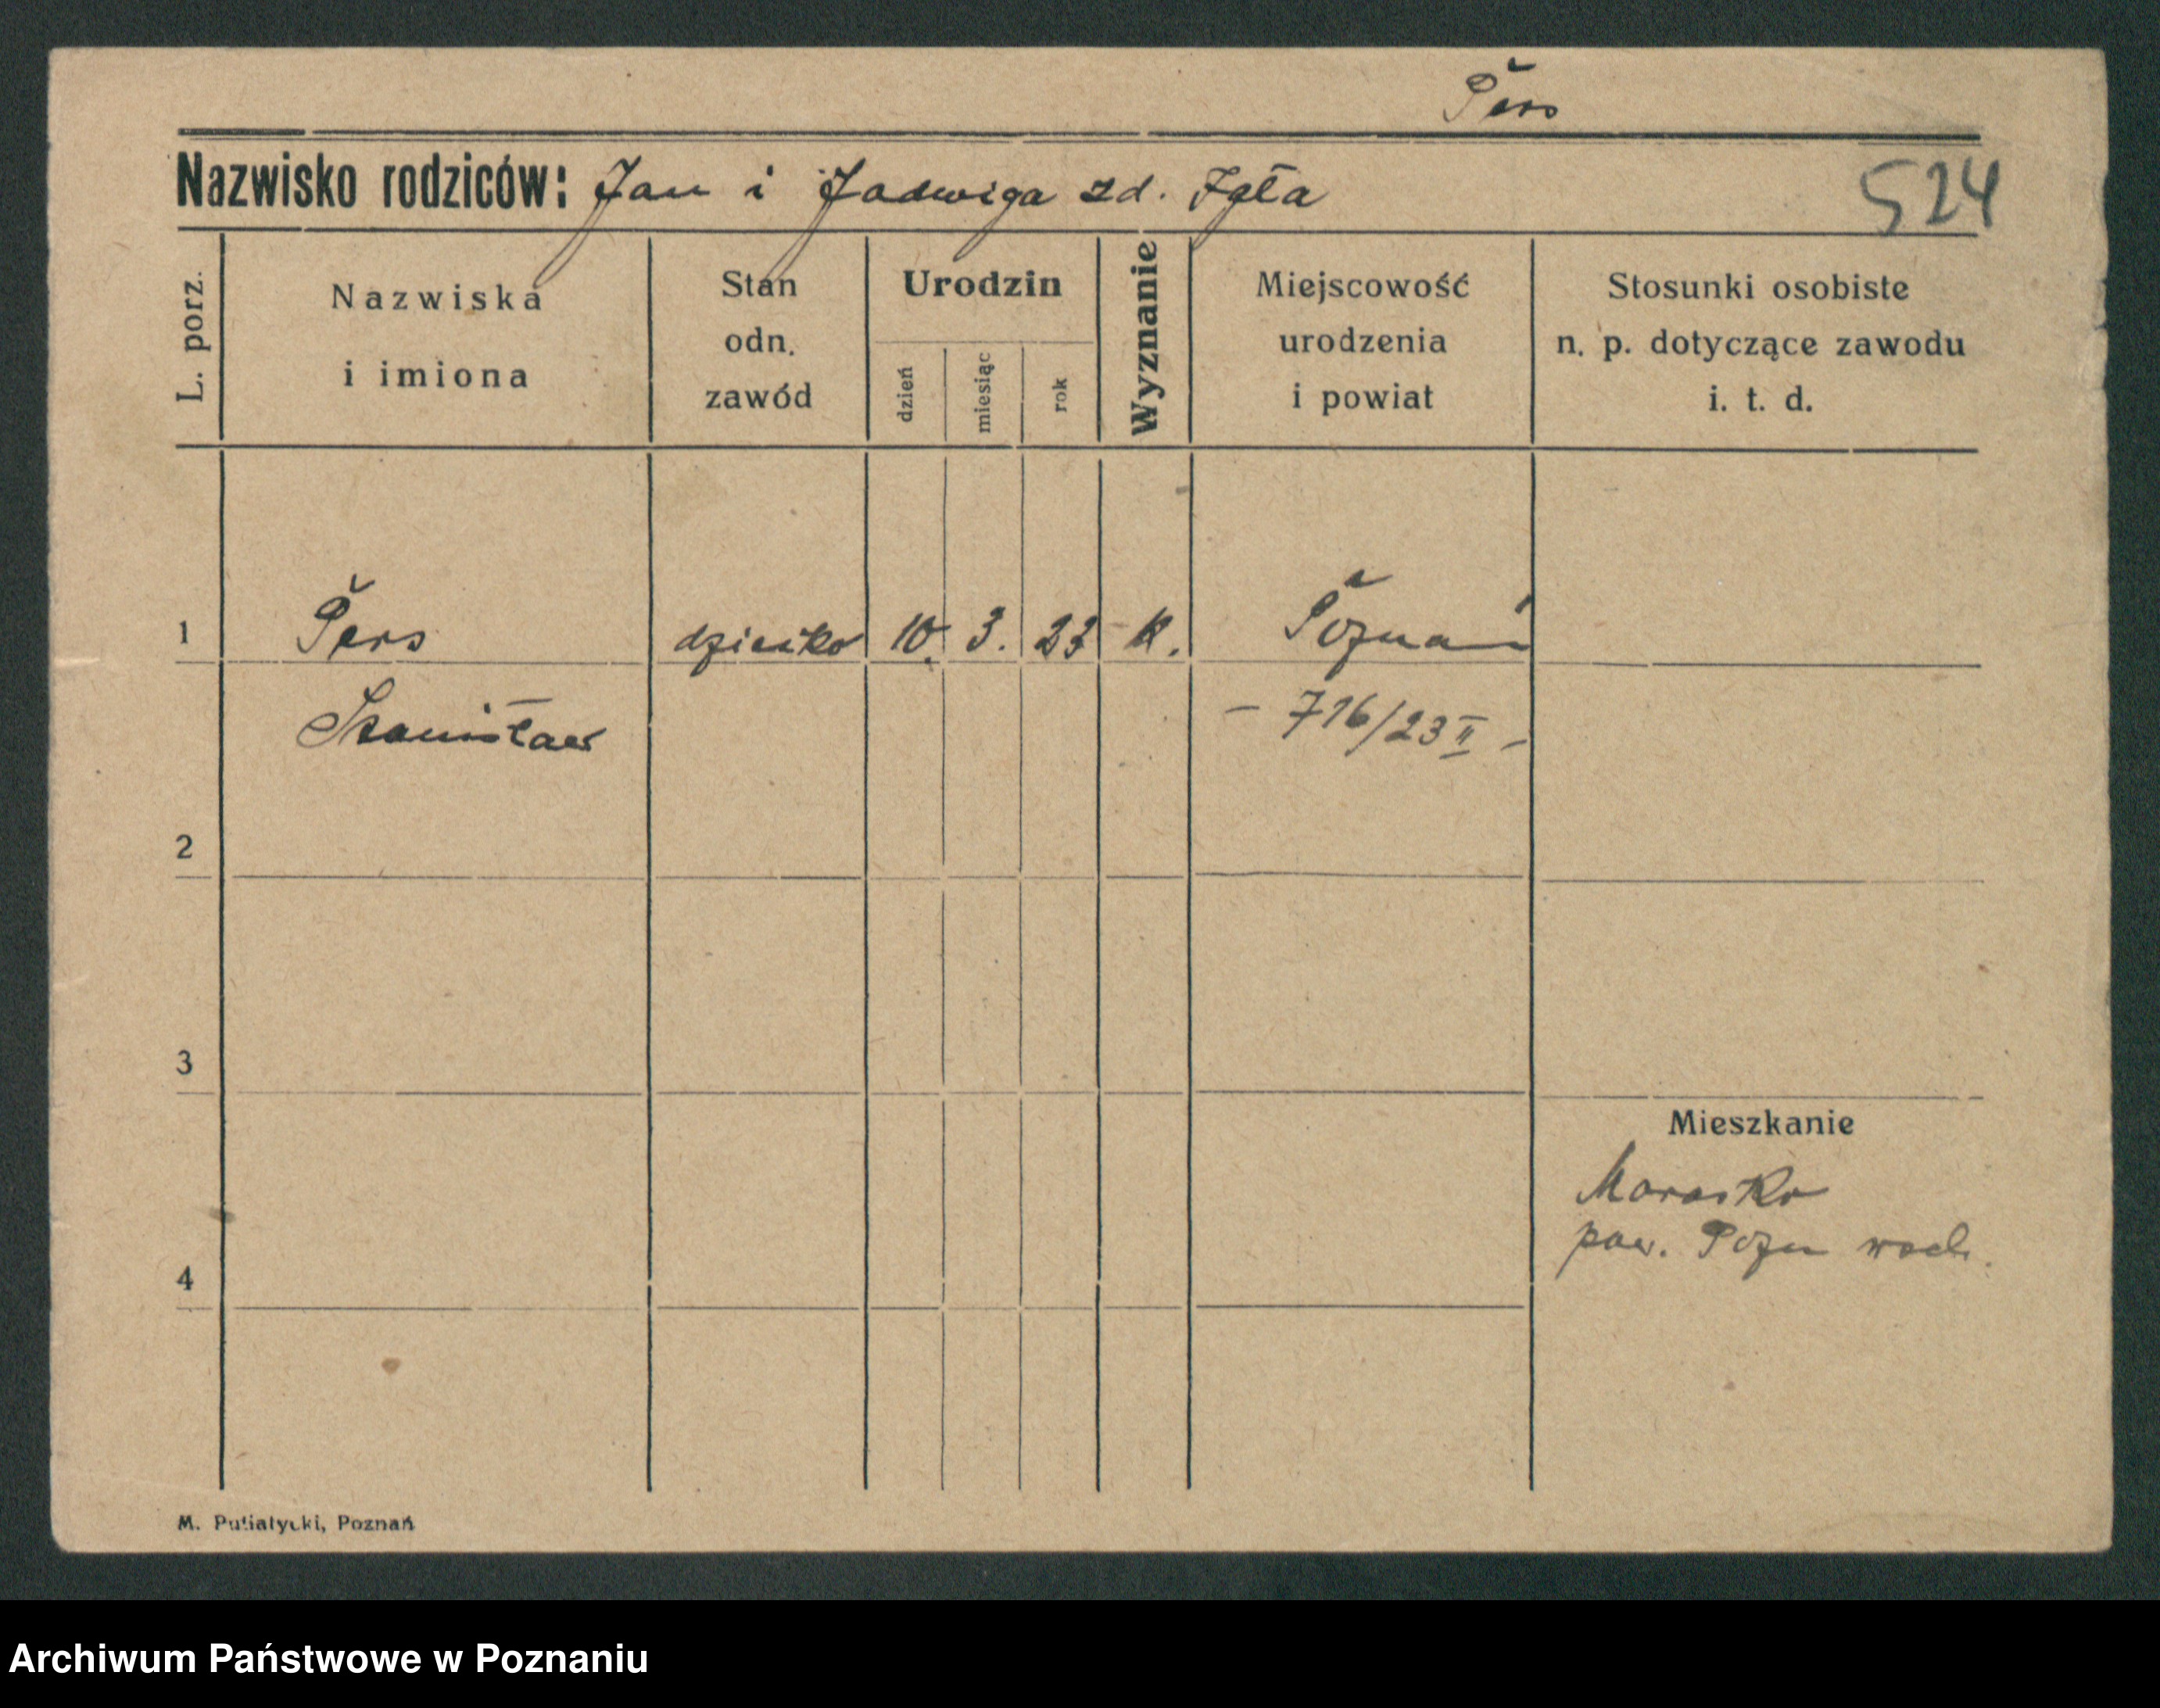 Pers
Nazwisko rodziców: Jan i Jadwiga zd. Igła
524
L. porz.
Nazwiska
i imiona
Stan
odn.
zawód
Urodzin
dzień
miesiąc
rok
Wyznanie
Miejscowość
urodzenia
i powiat
Stosunki osobiste
n. p. dotyczące zawodu
i. t. d.
1 Pers dziecko 10. 3. 23 k. Poznań
Stanisław - 716/23 II -
2
3
Mieszkanie
Morasko
pow. Pozn wsch.
4
M. Putiatycki, Poznań
Archiwum Państwowe w Poznaniu